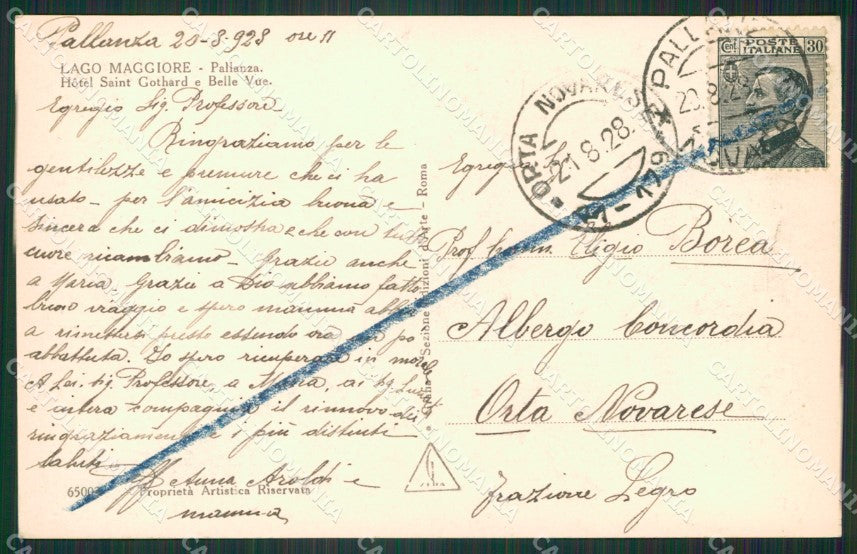 Pallanza 20-8-928 ore 11
LAGO MAGGIORE - Pallanza.
Hôtel Saint Gothard e Belle Vue.
Egregio Sig. Professore
Ringraziamo per le
gentilezze e premure che ci ha
usato - per l'amicizia buona e
sincera che ci dimostra e che con tutto
cuore ricambiamo - Grazie anche
a Maria. Grazie a Dio abbiamo fatto
buon viaggio e spero mamma
a rimettersi presto essendo ora un po
abbattuta. Io spero ricuperare in
A Lei, Sig. Professore, a Maria, ai Sig.
e intera compagnia il rinnovo dei
ringraziamenti e i più distinti
saluti
Anna Aroldi e
mamma
6500
Proprietà Artistica Riservata
Sezione Edizioni d'Arte - Roma
POSTE ITALIANE
Cent 30
PALLANZA
20.8.28
NOVARA
ORTA NOVARESE
21.8.28
Egregio
Prof. Eligio Borea
Albergo Concordia
Orta Novarese
frazione Legro
CARTOLINOMANIA